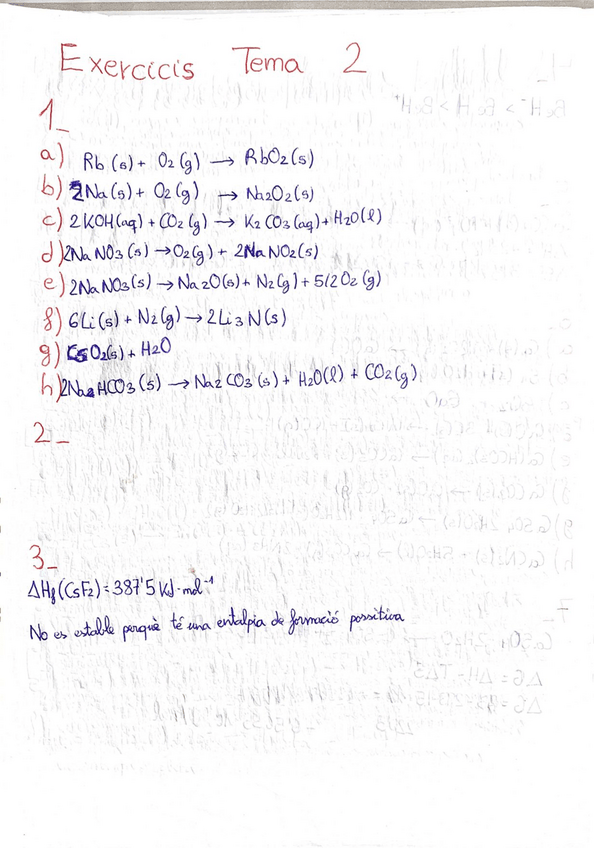 Exercicis Tema 2
1_
a) Rb (s) + O2 (g) → RbO2 (s)
b) 2Na (s) + O2 (g) → Na2O2 (s)
c) 2KOH (aq) + CO2 (g) → K2CO3 (aq) + H2O (l)
d) 2NaNO3 (s) → O2 (g) + 2NaNO2 (s)
e) 2NaNO3 (s) → Na2O (s) + N2 (g) + 5/2O2 (g)
f) 6Li (s) + N2 (g) → 2Li3N (s)
g) CsO2 (s) + H2O
h) 2NaHCO3 (s) → Na2CO3 (s) + H2O (l) + CO2 (g)
2_
3_
ΔHf (CsF2) = 387'5 KJ·mol⁻¹
No es estable perquè té una entalpia de formació possitiva